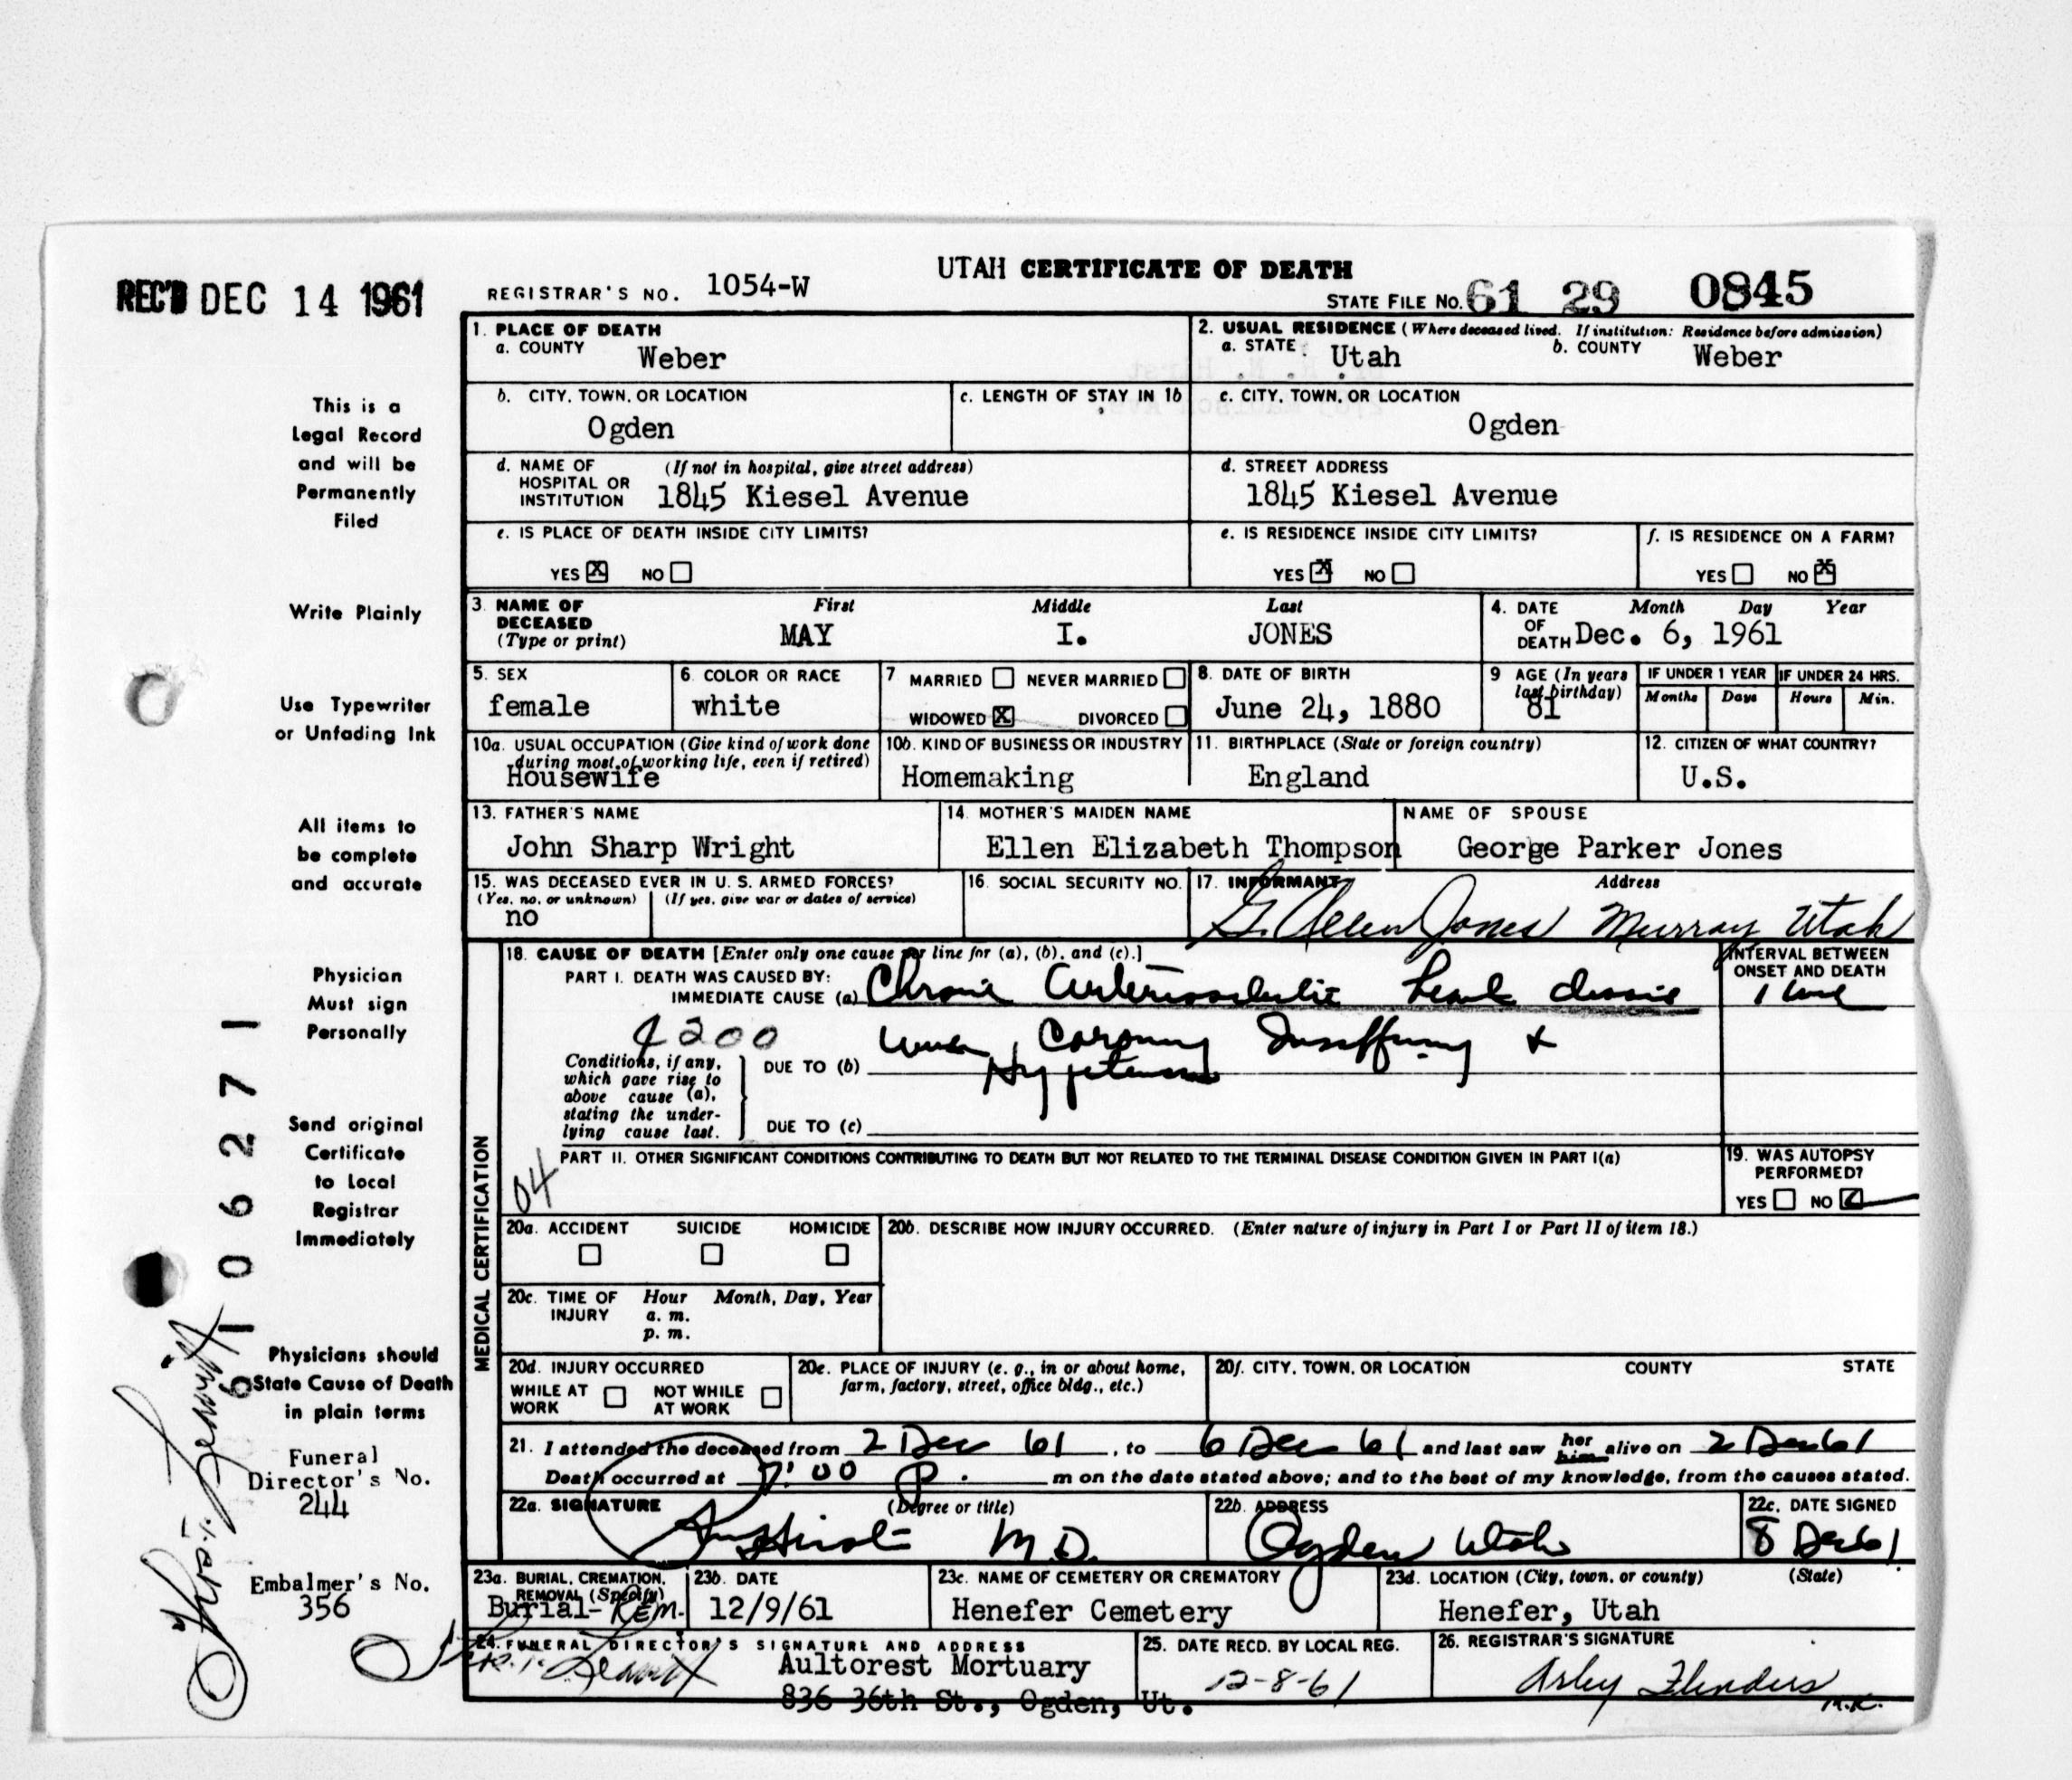 REC'D DEC 14 1961
REGISTRAR'S NO. 1054-W
UTAH CERTIFICATE OF DEATH
STATE FILE NO. 61 29 0845
This is a
Legal Record
and will be
Permanently
Filed
Write Plainly
Use Typewriter
or Unfading Ink
All items to
be complete
and accurate
Physician
Must sign
Personally
Send original
Certificate
to Local
Registrar
Immediately
Physicians should
State Cause of Death
in plain terms
Funeral
Director's No.
244
Embalmer's No.
356
6106271
1. PLACE OF DEATH
a. COUNTY Weber
2. USUAL RESIDENCE (Where deceased lived. If institution: Residence before admission)
a. STATE Utah b. COUNTY Weber
b. CITY, TOWN, OR LOCATION
Ogden
c. LENGTH OF STAY IN 1b
c. CITY, TOWN, OR LOCATION
Ogden
d. NAME OF HOSPITAL OR INSTITUTION (If not in hospital, give street address)
1845 Kiesel Avenue
d. STREET ADDRESS
1845 Kiesel Avenue
e. IS PLACE OF DEATH INSIDE CITY LIMITS?
YES X NO
e. IS RESIDENCE INSIDE CITY LIMITS?
YES X NO
f. IS RESIDENCE ON A FARM?
YES NO X
3. NAME OF DECEASED (Type or print) First Middle Last
MAY I. JONES
4. DATE OF DEATH Month Day Year
Dec. 6, 1961
5. SEX
female
6. COLOR OR RACE
white
7 MARRIED NEVER MARRIED
WIDOWED X DIVORCED
8. DATE OF BIRTH
June 24, 1880
9 AGE (In years last birthday)
81
IF UNDER 1 YEAR
Months Days
IF UNDER 24 HRS.
Hours Min.
10a. USUAL OCCUPATION (Give kind of work done
during most of working life, even if retired)
Housewife
10b. KIND OF BUSINESS OR INDUSTRY
Homemaking
11. BIRTHPLACE (State or foreign country)
England
12. CITIZEN OF WHAT COUNTRY?
U.S.
13. FATHER'S NAME
John Sharp Wright
14. MOTHER'S MAIDEN NAME
Ellen Elizabeth Thompson
NAME OF SPOUSE
George Parker Jones
15. WAS DECEASED EVER IN U. S. ARMED FORCES?
(Yes, no, or unknown) (If yes, give war or dates of service)
no
16. SOCIAL SECURITY NO.
17. INFORMANT Address
G. Allen Jones Murray Utah
MEDICAL CERTIFICATION
18. CAUSE OF DEATH [Enter only one cause per line for (a), (b), and (c).]
PART I. DEATH WAS CAUSED BY:
IMMEDIATE CAUSE (a) Chronic Arteriosclerotic heart disease
INTERVAL BETWEEN
ONSET AND DEATH
4200
Coronary Insufficiency &
Conditions, if any,
which gave rise to
above cause (a),
stating the under-
lying cause last.
DUE TO (b) Hypertension
DUE TO (c)
04
PART II. OTHER SIGNIFICANT CONDITIONS CONTRIBUTING TO DEATH BUT NOT RELATED TO THE TERMINAL DISEASE CONDITION GIVEN IN PART I(a)
19. WAS AUTOPSY
PERFORMED?
YES NO
20a. ACCIDENT SUICIDE HOMICIDE
20b. DESCRIBE HOW INJURY OCCURRED. (Enter nature of injury in Part I or Part II of item 18.)
20c. TIME OF INJURY Hour Month, Day, Year
a. m.
p. m.
20d. INJURY OCCURRED
WHILE AT WORK NOT WHILE AT WORK
20e. PLACE OF INJURY (e. g., in or about home,
farm, factory, street, office bldg., etc.)
20f. CITY, TOWN, OR LOCATION COUNTY STATE
21. I attended the deceased from 2 Dec 61, to 6 Dec 61 and last saw her him alive on 2 Dec 61
Death occurred at 7:00 P. m on the date stated above; and to the best of my knowledge, from the causes stated.
22a. SIGNATURE (Degree or title)
Hirst M.D.
22b. ADDRESS
Ogden Utah
22c. DATE SIGNED
8 Dec 61
23a. BURIAL, CREMATION,
REMOVAL (Specify)
Burial- REM.
23b. DATE
12/9/61
23c. NAME OF CEMETERY OR CREMATORY
Henefer Cemetery
23d. LOCATION (City, town, or county) (State)
Henefer, Utah
24. FUNERAL DIRECTOR'S SIGNATURE AND ADDRESS
Aultorest Mortuary
836 36th St., Ogden, Ut.
25. DATE RECD. BY LOCAL REG.
12-8-61
26. REGISTRAR'S SIGNATURE
Arley Flinders
M.K.